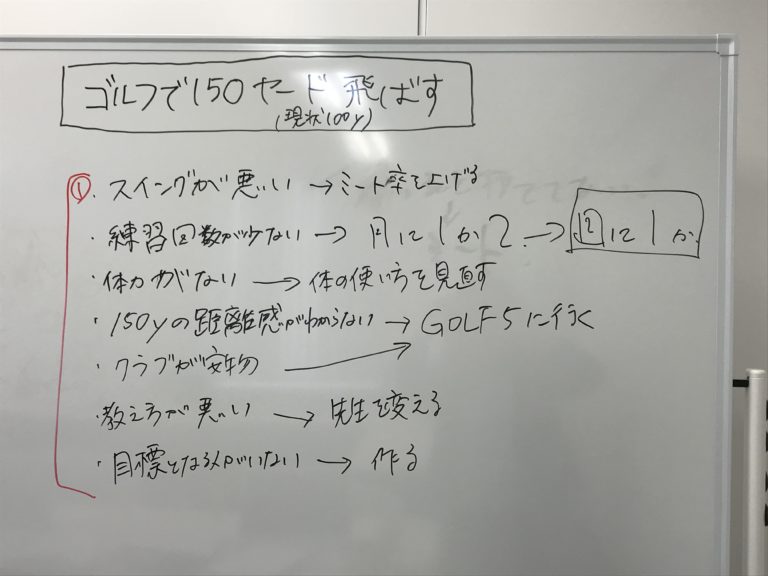 ゴルフで150ヤード飛ばす
(現状100y)
① ・スイングが悪い → ミート率を上げる
・練習回数が少ない → 月に1か2 → に1か
・体力がない → 体の使い方を見直す
・150yの距離感がわからない → GOLF5に行く
・クラブが安物 →
・教え方が悪い → 先生を変える
・目標となる人がいない → 作る